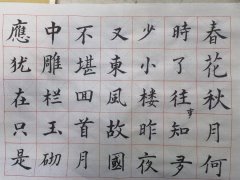 春花秋月何
時了往事知多
少小楼昨夜
又東風故國
不堪回首月
中雕栏玉砌
應犹在只是